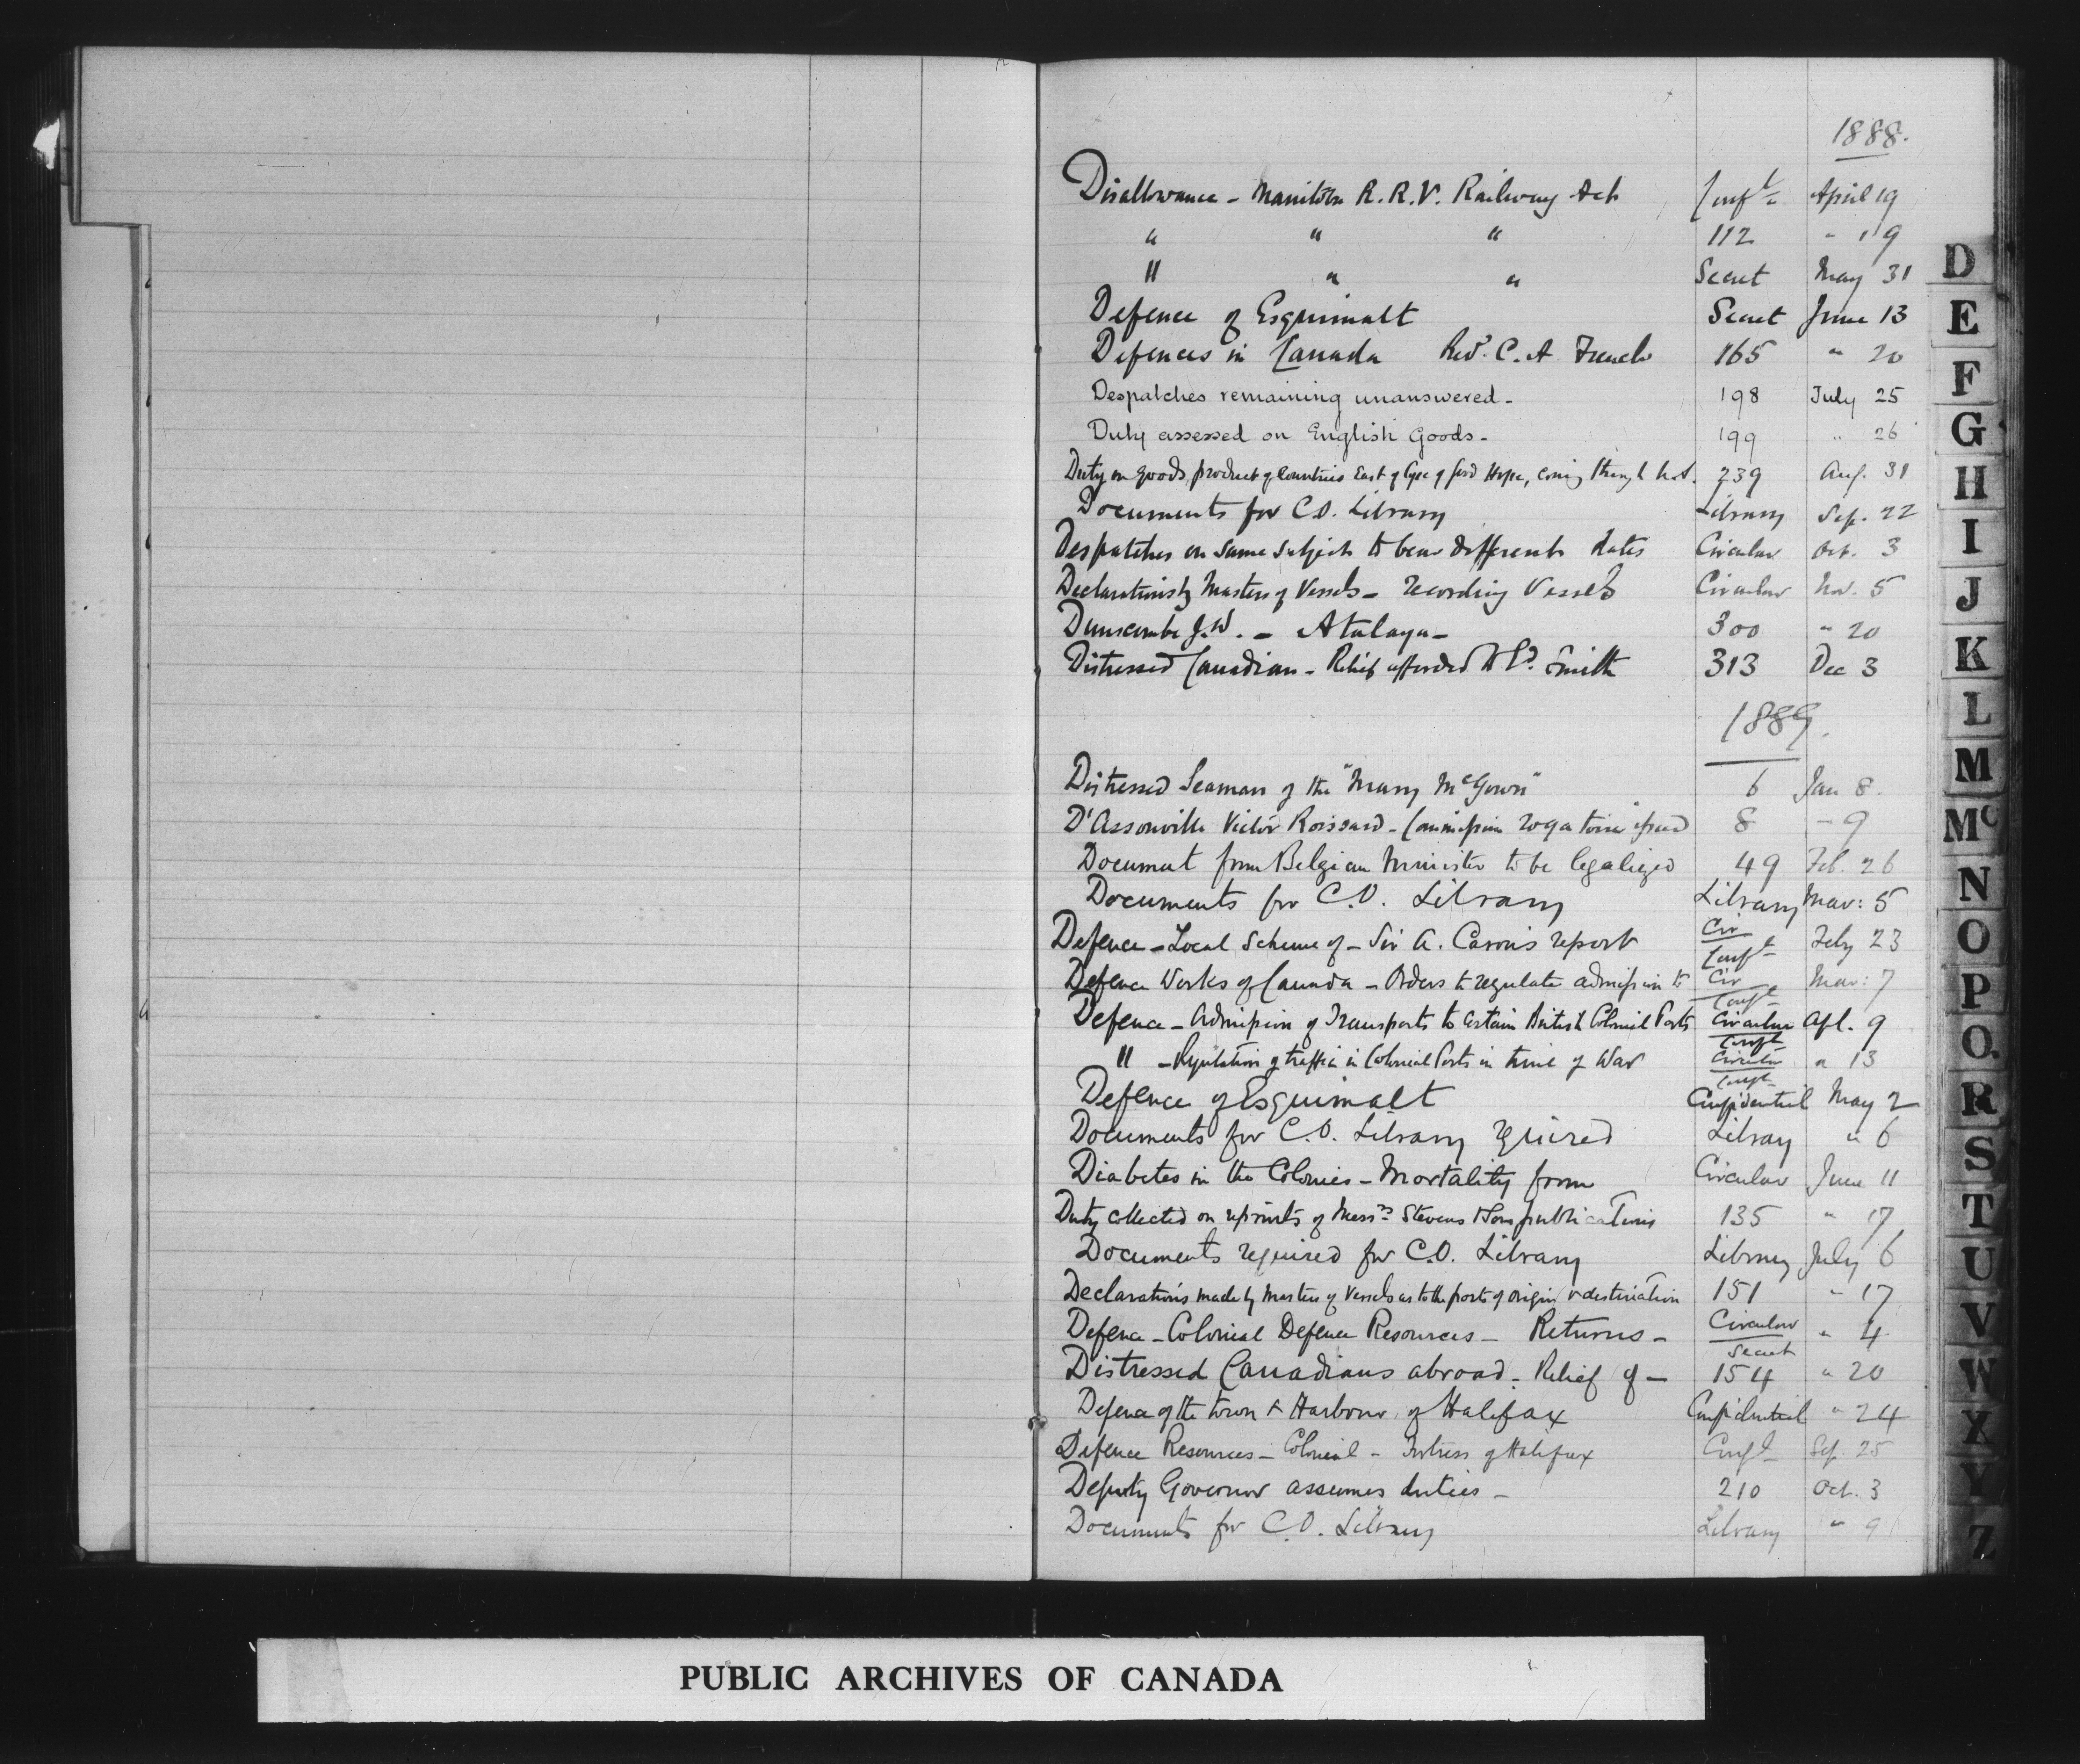 1888.
Disallowance - Manitoba R.R.V. Railway Act Conf'l April 19
" " " 112 " 19
" " " Secret May 31
Defence of Esquimalt Secret June 13
Defences in Canada Revd. C. A French 165 " 20
Despatches remaining unanswered - 198 July 25
Duty assessed on English Goods - 199 " 26
Duty on goods, product of countries East of Cape of Good Hope, coming through 239 Aug. 31
Documents for C.O. Library Library Sep. 22
Despatches on same subject to bear different dates Circular Oct. 3
Declarations by Masters of Vessels - recording Vessels Circular Nov. 5
Dunscombe J.W. - Atalaya - 300 " 20
Distressed Canadian - Relief afforded to Smith 313 Dec 3
1889.
Distressed Seaman of the "Mary McGowan" 6 Jan 8.
D'Assonville Victor Roissard - Commission rogatoire issued 8 - 9
Document from Belgian Minister to be legalized 49 Feb. 26
Documents for C.O. Library Library Mar: 5
Defence - Local Scheme of - Sir A. Caron's report Cir Conf'l Feby 23
Defence Works of Canada - Orders to regulate admission to Cir Conf'l Mar: 7
Defence - Admission of Transports to certain British Colonial Ports Circular Conf'l Apl. 9
" - Regulation of traffic in Colonial Ports in time of War Circular Conf'l " 13
Defence of Esquimalt Confidential May 2
Documents for C.O. Library required Library " 6
Diabetes in the Colonies - Mortality from Circular June 11
Duty collected on reprints of Messrs Stevens & Sons publications 135 " 17
Documents required for C.O. Library Library July 6
Declarations made by Masters of Vessels as to the ports of origin & destination 151 " 17
Defence - Colonial Defence Resources - Returns - Circular Secret " 4
Distressed Canadians abroad - Relief of - 154 " 20
Defence of the town & Harbour of Halifax Confidential " 24
Defence Resources - Colonial - Fortress of Halifax Conf'l Sep. 25
Deputy Governor assumes duties - 210 Oct. 3
Documents for C.O. Library Library " 9
D
E
F
G
H
I
J
K
L
M
Mc
N
O
P
Q.
R
S
T
U
V
W
X
Y
Z
PUBLIC ARCHIVES OF CANADA